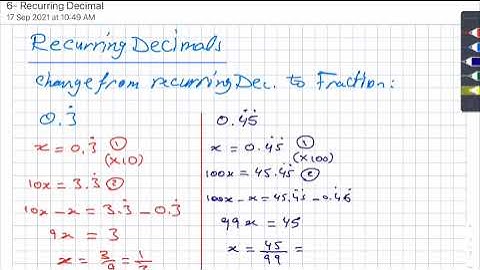 6- Recurring Decimal
17 Sep 2021 at 10:49 AM
Recurring Decimals
change from recurring Dec. to Fraction:
0.3̇
x = 0.3̇ ①
(x10)
10x = 3.3̇ ②
10x - x = 3.3̇ - 0.3̇
9x = 3
x = 3/9 = 1/3
0.4̇5̇
x = 0.4̇5̇ ①
(x100)
100x = 45.4̇5̇ ②
100x - x = 45.4̇5̇ - 0.4̇5̇
99x = 45
x = 45/99 =